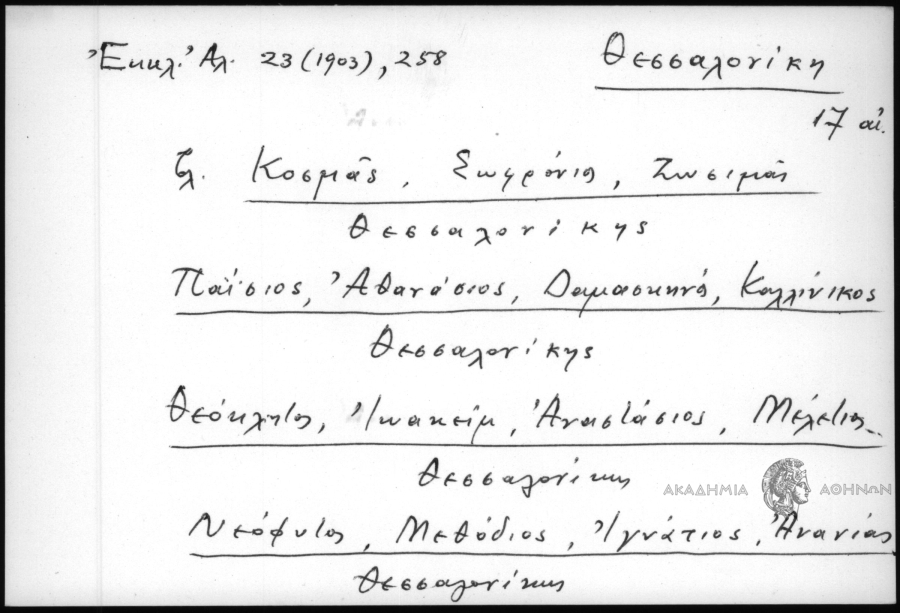 Ἐκκλ. Ἀλ. 23 (1903), 258
Θεσσαλονίκη
17 αἰ.
βλ. Κοσμᾶς, Σωφρόνιος, Ζωσιμᾶς
Θεσσαλονίκης
Παΐσιος, Ἀθανάσιος, Δαμασκηνός, Καλλίνικος
Θεσσαλονίκης
Θεόκλητος, Ἰωακείμ, Ἀναστάσιος, Μελέτιος
Θεσσαλονίκης
ΑΚΑΔΗΜΙΑ ΑΘΗΝΩΝ
Νεόφυτος, Μεθόδιος, Ἰγνάτιος, Ἀνανίας
Θεσσαλονίκης